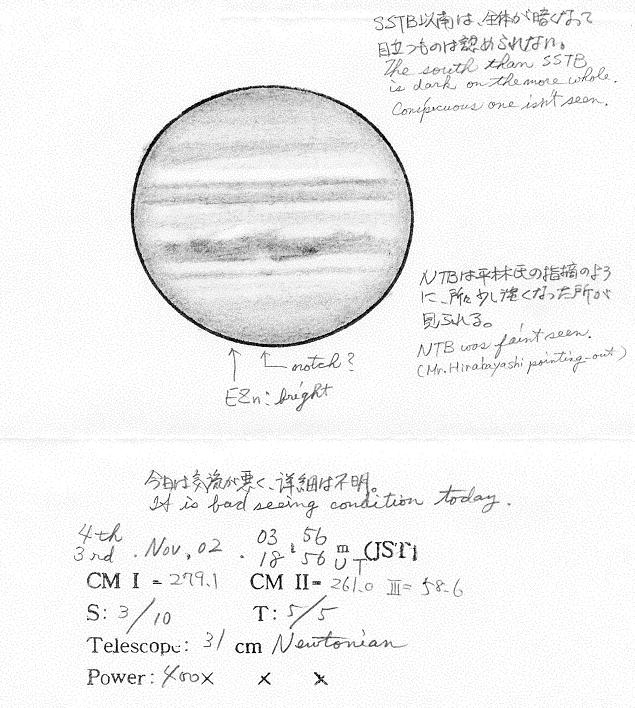 SSTB以南は、全体が暗くなって
目立つものは認められない。
The south than SSTB
is dark on the more whole.
Conspicuous one isn't seen.
NTBは平林氏の指摘のよう
に、所々少し濃くなった所が
見られる。
NTB was faint seen.
(Mr.Hirabayashi pointing-out)
notch?
EZn: bright
今日は気流が悪く、詳細は不明。
It is bad seeing condition today.
4th 03 56 m (JST)
3rd . Nov, 02 . 18 h 56 UT
CM I = 279.1 CM II= 261.0 III= 58.6
S: 3/10 T: 5/5
Telescope: 31 cm Newtonian
Power: 400x x x